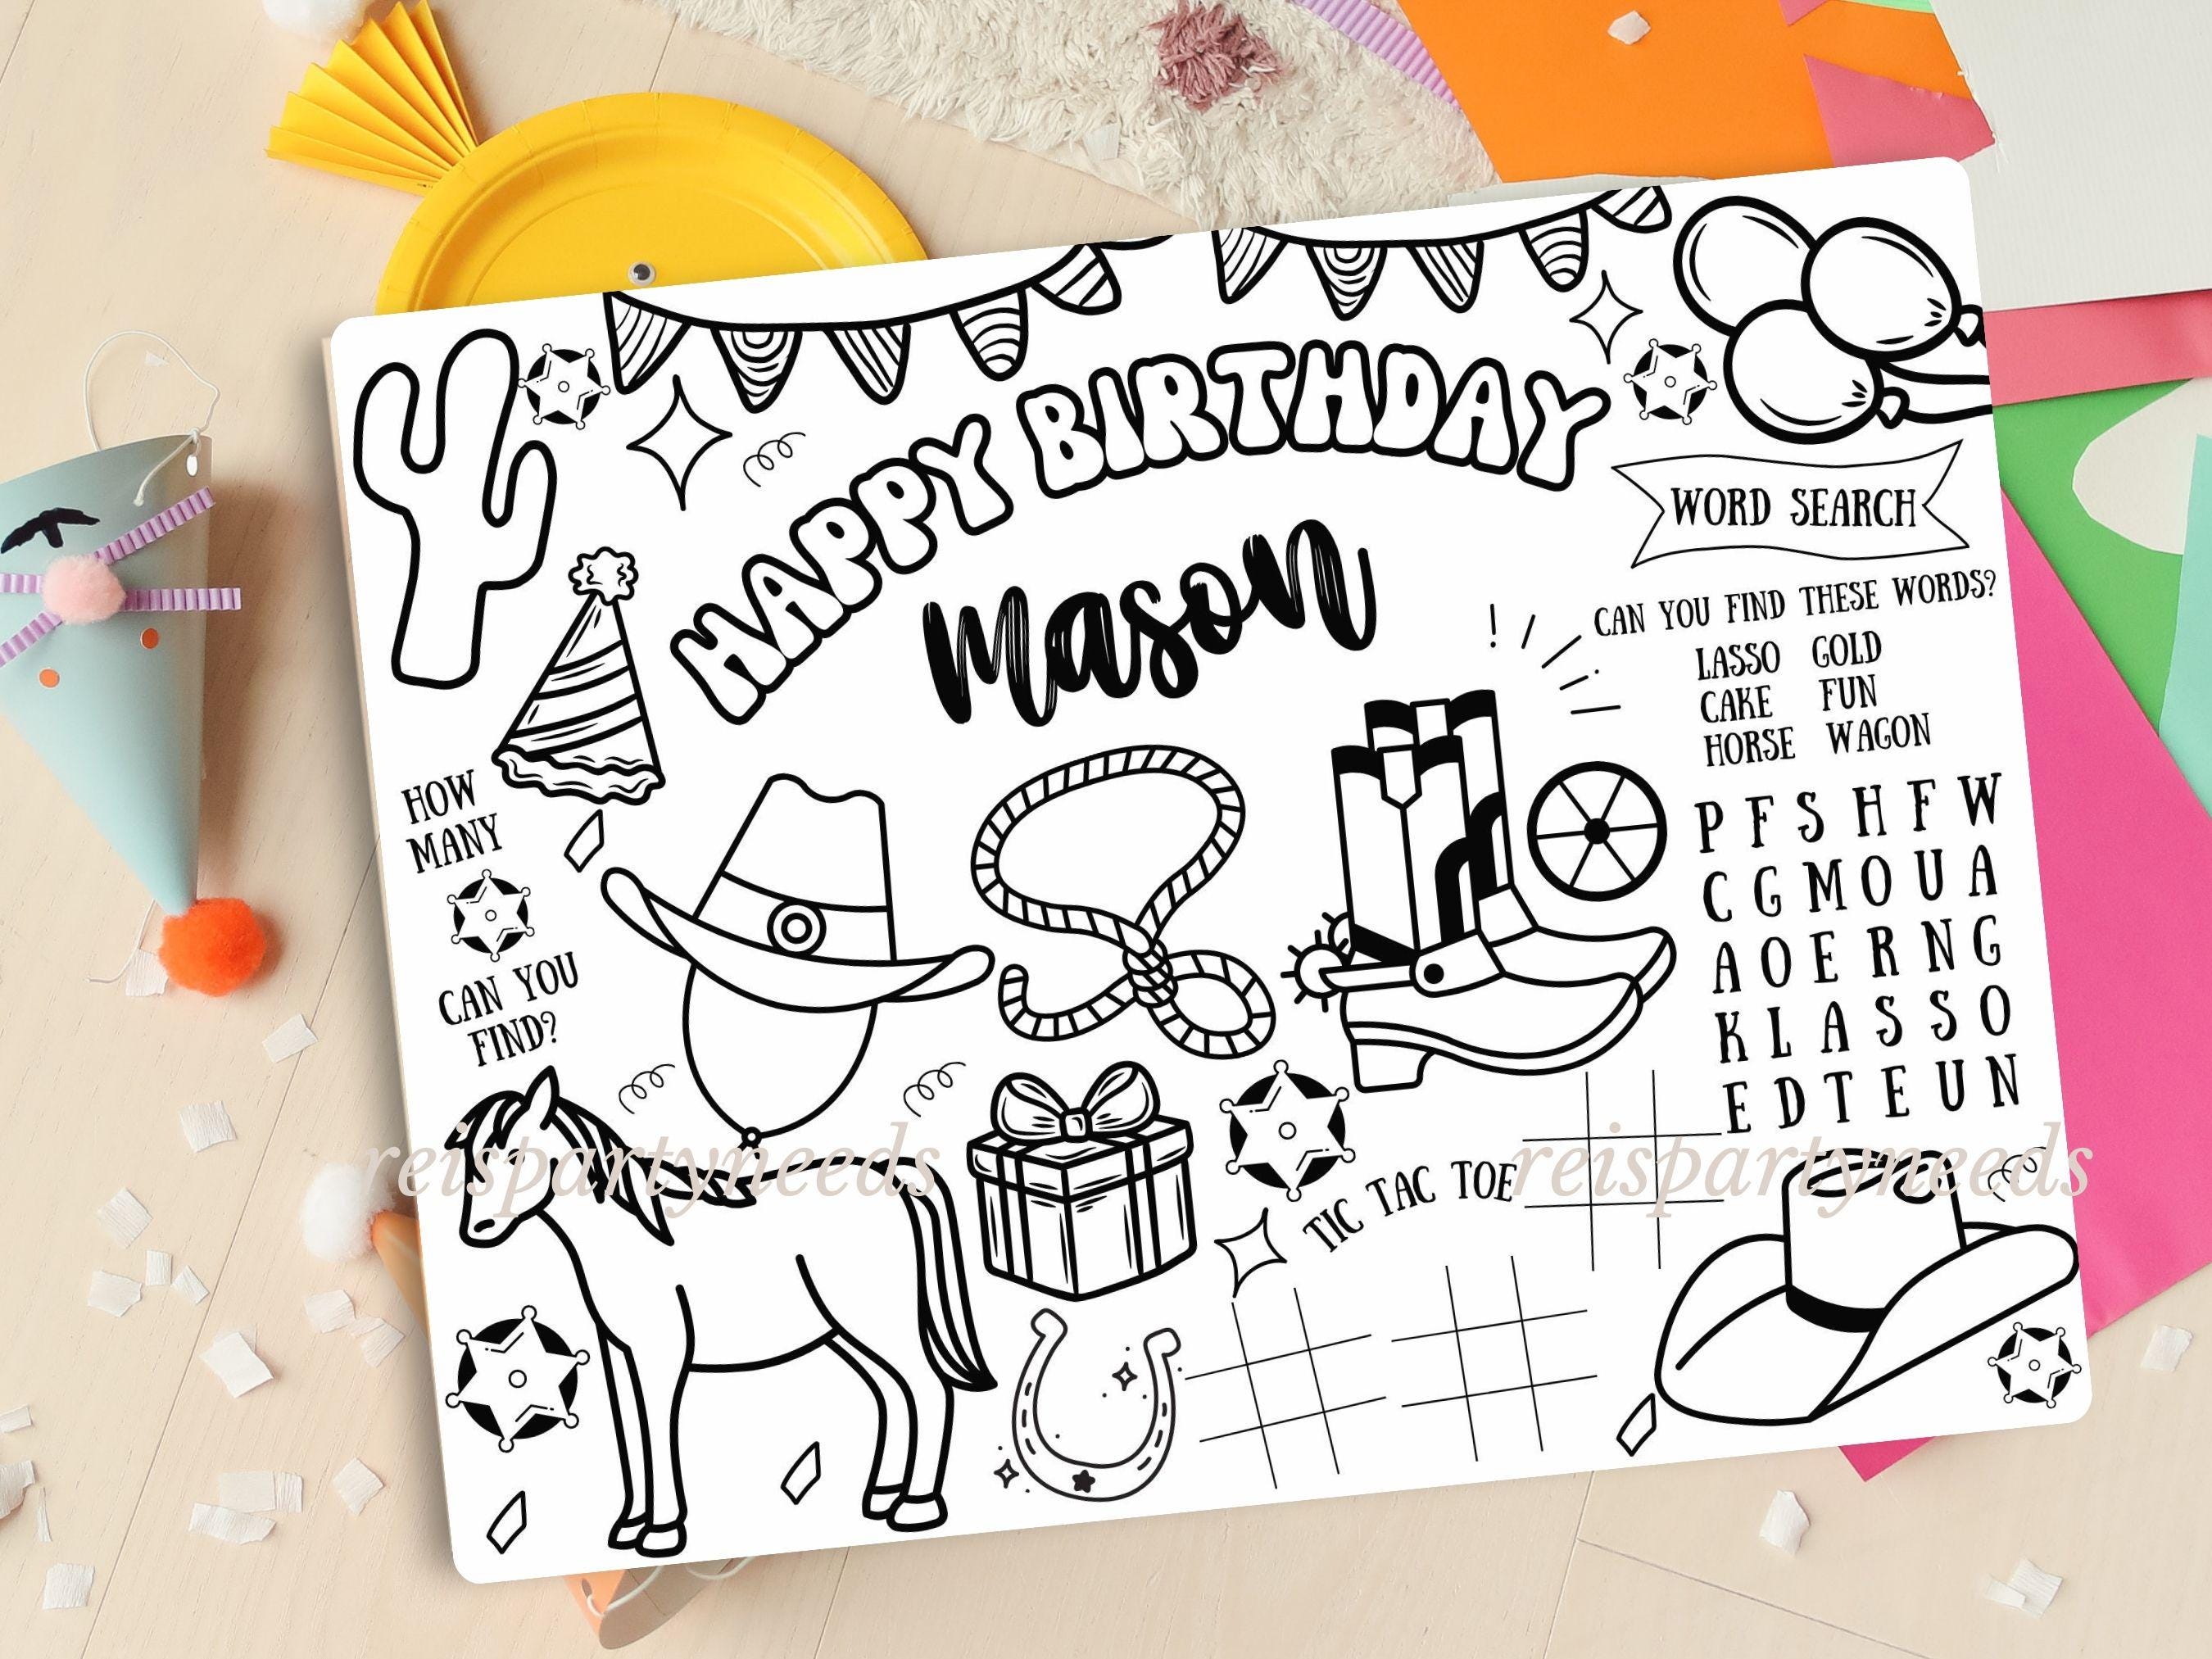 HAPPY BIRTHDAY
mason
WORD SEARCH
CAN YOU FIND THESE WORDS?
LASSO GOLD
CAKE FUN
HORSE WAGON
P F S H F W
C G M O U A
A O E R N G
K L A S S O
E D T E U N
HOW
MANY
CAN YOU
FIND?
TIC TAC TOE
reispartyneeds
reispartyneeds